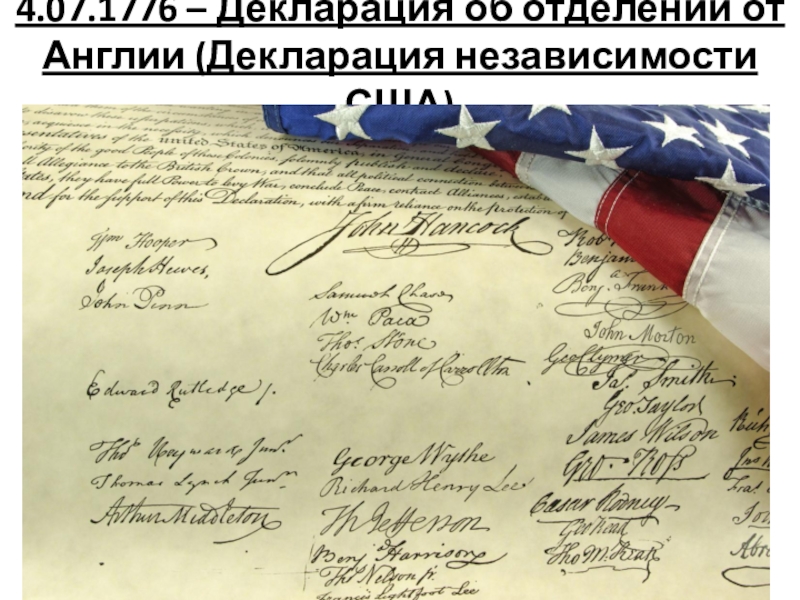 4.07.1776 – Декларация об отделении от
Англии (Декларация независимости
США)
united States of America, in General
of the good People of these Colonies, solemnly publish and declare,
Allegiance to the British Crown, and that all political connection between
they have full Power to levy War, conclude Peace, contract Alliances,
for the support of this Declaration, with a firm reliance on the protection of
John Hancock
Wm Hooper
Joseph Hewes,
John Penn
Edward Rutledge /.
Thos Heyward Junr.
Thomas Lynch Junr
Arthur Middleton
Samuel Chase
Wm Paca
Thos Stone
Charles Carroll of Carrollton
George Wythe
Richard Henry Lee
Th Jefferson
Benj Harrison
Thos Nelson jr.
Francis Lightfoot Lee
Rob
Benjam
Benj. Frank
John Morton
Geo Clymer
Jas. Smith
Geo. Taylor
James Wilson
Geo. Ross
Caesar Rodney
Geo Read
Tho M:Kean